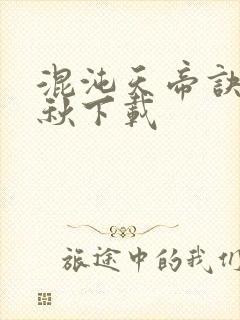 混沌天帝诀
秋下载
旅途中的我们